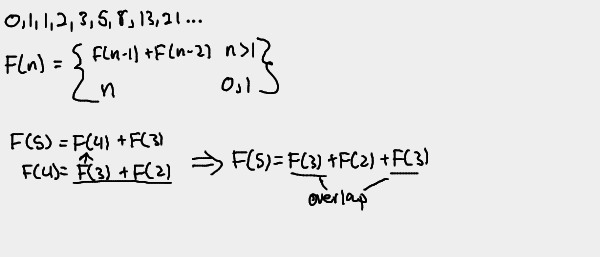 0,1,1,2,3,5,8,13,21...
F(n) = { F(n-1) + F(n-2) n>1 }
n 0,1
F(5) = F(4) + F(3)
F(4) = F(3) + F(2) ⇒ F(5) = F(3) + F(2) + F(3)
overlap